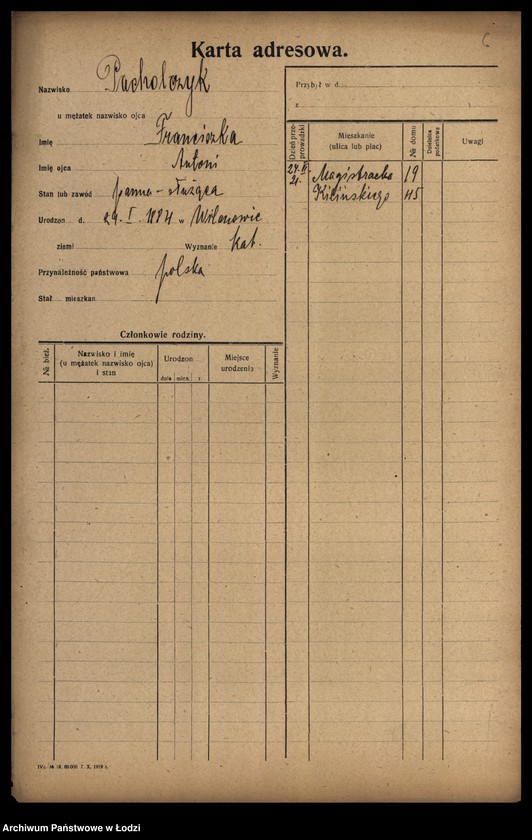 6
Karta adresowa.
Nazwisko Pacholczyk
u mężatek nazwisko ojca
Imię Franciszka
Imię ojca Antoni
Stan lub zawód panna - służąca
Urodzon d. 29. I. 1884 w Wilanowie
ziemi Wyznanie kat.
Przynależność państwowa polska
Stał mieszkan
Członkowie rodziny.
№ bież.
Nazwisko i imię
(u mężatek nazwisko ojca)
i stan
Urodzon
dnia mies. r.
Miejsce
urodzenia
Wyznanie
Przybył w d.
z
Dzień prze-
prowadzki
Mieszkanie
(ulica lub plac)
№ domu
Dzielnica
podatkowa
Uwagi
Magistracka 19
21. Kilińskiego 45
Archiwum Państwowe w Łodzi